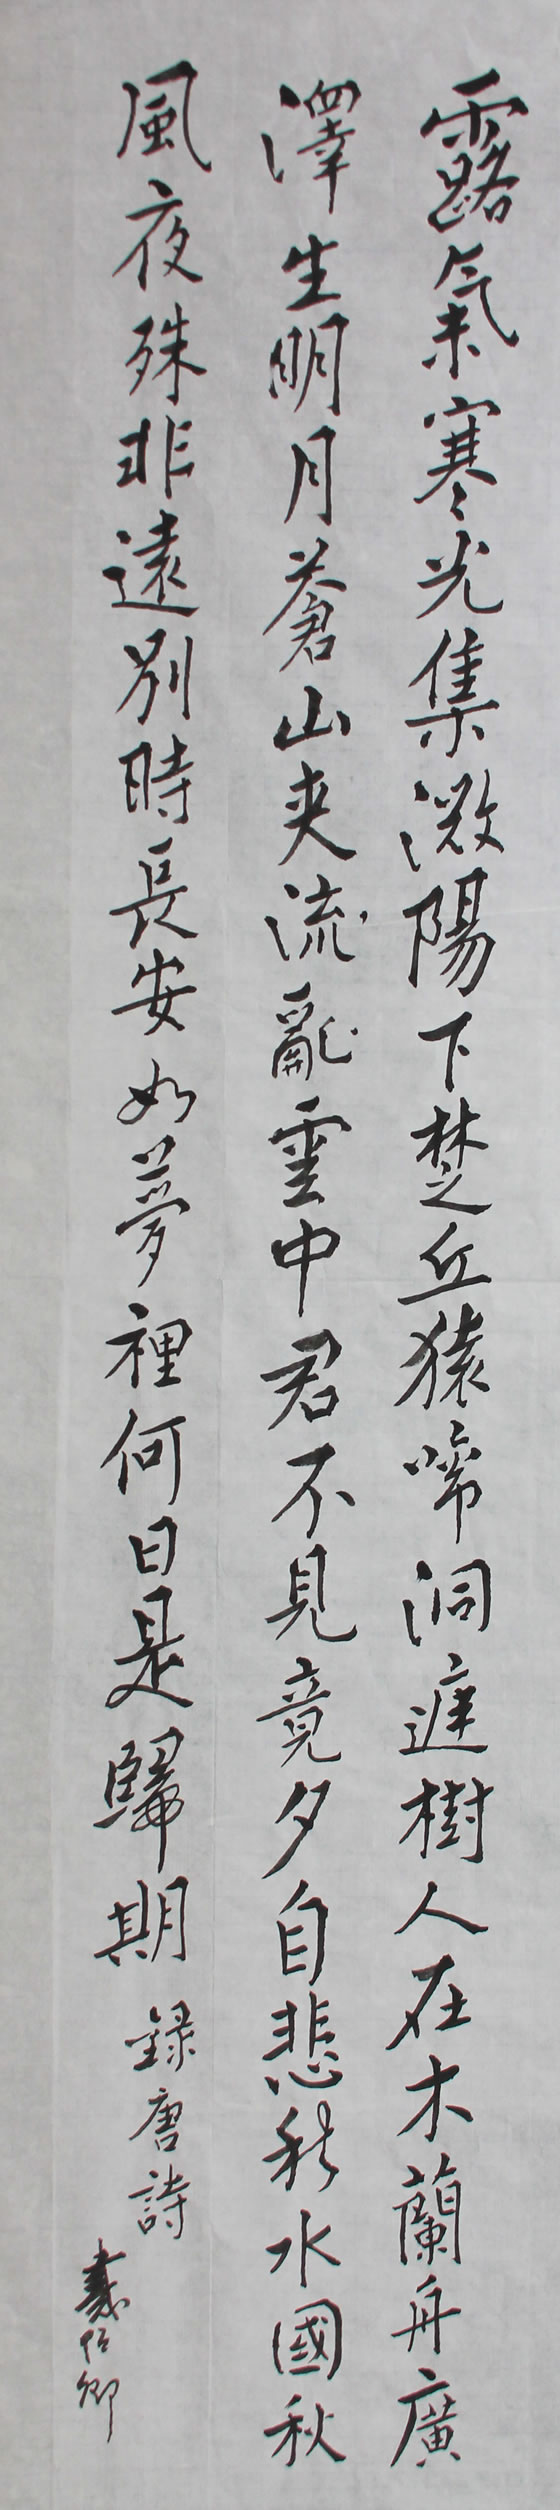 露氣寒光集微陽下楚丘猿啼洞庭樹人在木蘭舟廣
澤生明月蒼山夾流亂雲中君不見竟夕自悲秋水國秋
風夜殊非遠別時長安如夢裡何日是歸期
錄唐詩